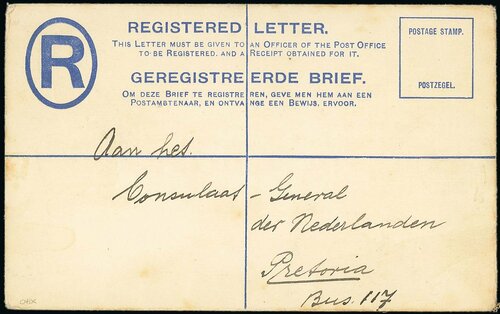 R
REGISTERED LETTER.
THIS LETTER MUST BE GIVEN TO AN OFFICER OF THE POST OFFICE
TO BE REGISTERED, AND A RECEIPT OBTAINED FOR IT.
GEREGISTREERDE BRIEF.
OM DEZE BRIEF TE REGISTREREN, GEVE MEN HEM AAN EEN
POSTAMBTENAAR, EN ONTVANGE EEN BEWIJS, ERVOOR.
POSTAGE STAMP.
POSTZEGEL.
Aan het.
Consulaat-General
der Nederlanden
Pretoria
Bus. 117